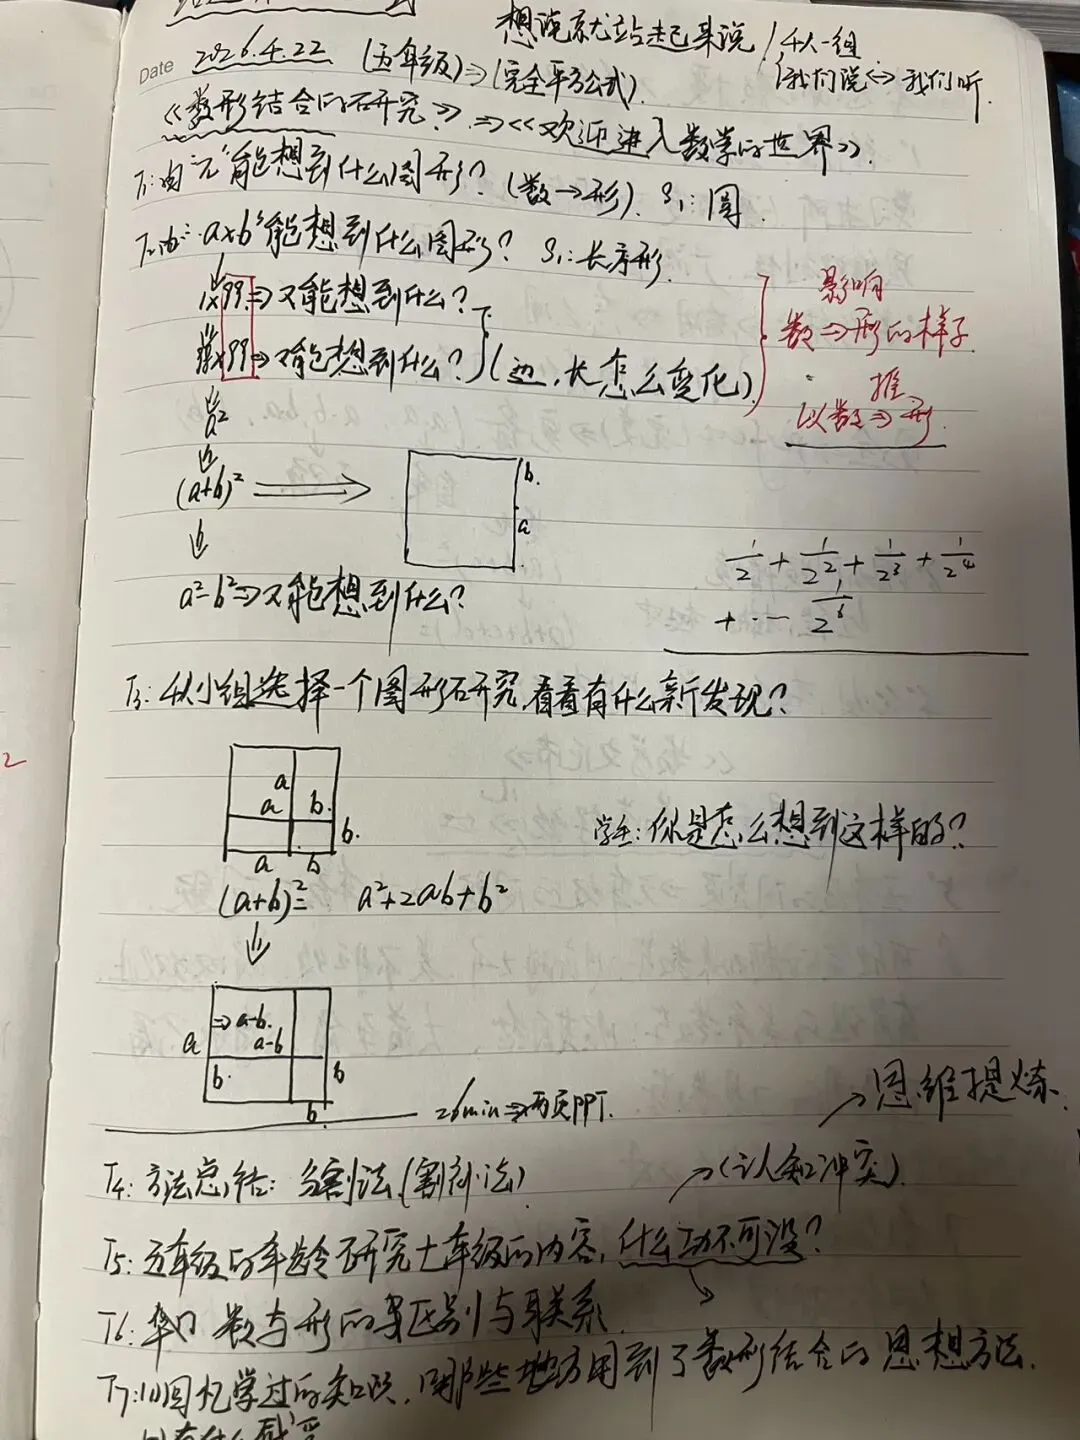 想说就站起来说 / 4人一组
我们说⇔我们听
Date 2026.4.22 (五年级)⇒(完全平方公式).
《数形结合的研究》⇒《欢迎进入数学的世界》.
T1:由"元"能想到什么图形? (数→形). S1:圆.
T2:由"a×b"能想到什么图形? S1:长方形.
1×99⇒又能想到什么?
×99⇒又能想到什么? (边,长怎么变化)
影响
数⇒形的样子
推
以数⇒形.
a²
(a+b)² ⇒
b.
a
a²-b²⇒又能想到什么?
1/2 + 1/2² + 1/2³ + 1/2⁴
+ ·· 1/2⁶
T3: 4人小组选择一个图形研究,看看有什么新发现?
a
a b.
b.
a b
学生:你是怎么想到这样的?
(a+b)²= a²+2ab+b²
⇒a-b.
a a-b
b. b
b.
26min⇒两页PPT.
→思维提炼.
T4:方法总结:分割法.(割补法)
→(认知冲突).
T5:五年级的年龄研究七年级的内容,什么功不可没?
T6: 数与形的区别与联系.
T7:(1)回忆学过的知识,哪些地方用到了数形结合的思想方法.
(2)有什么感受